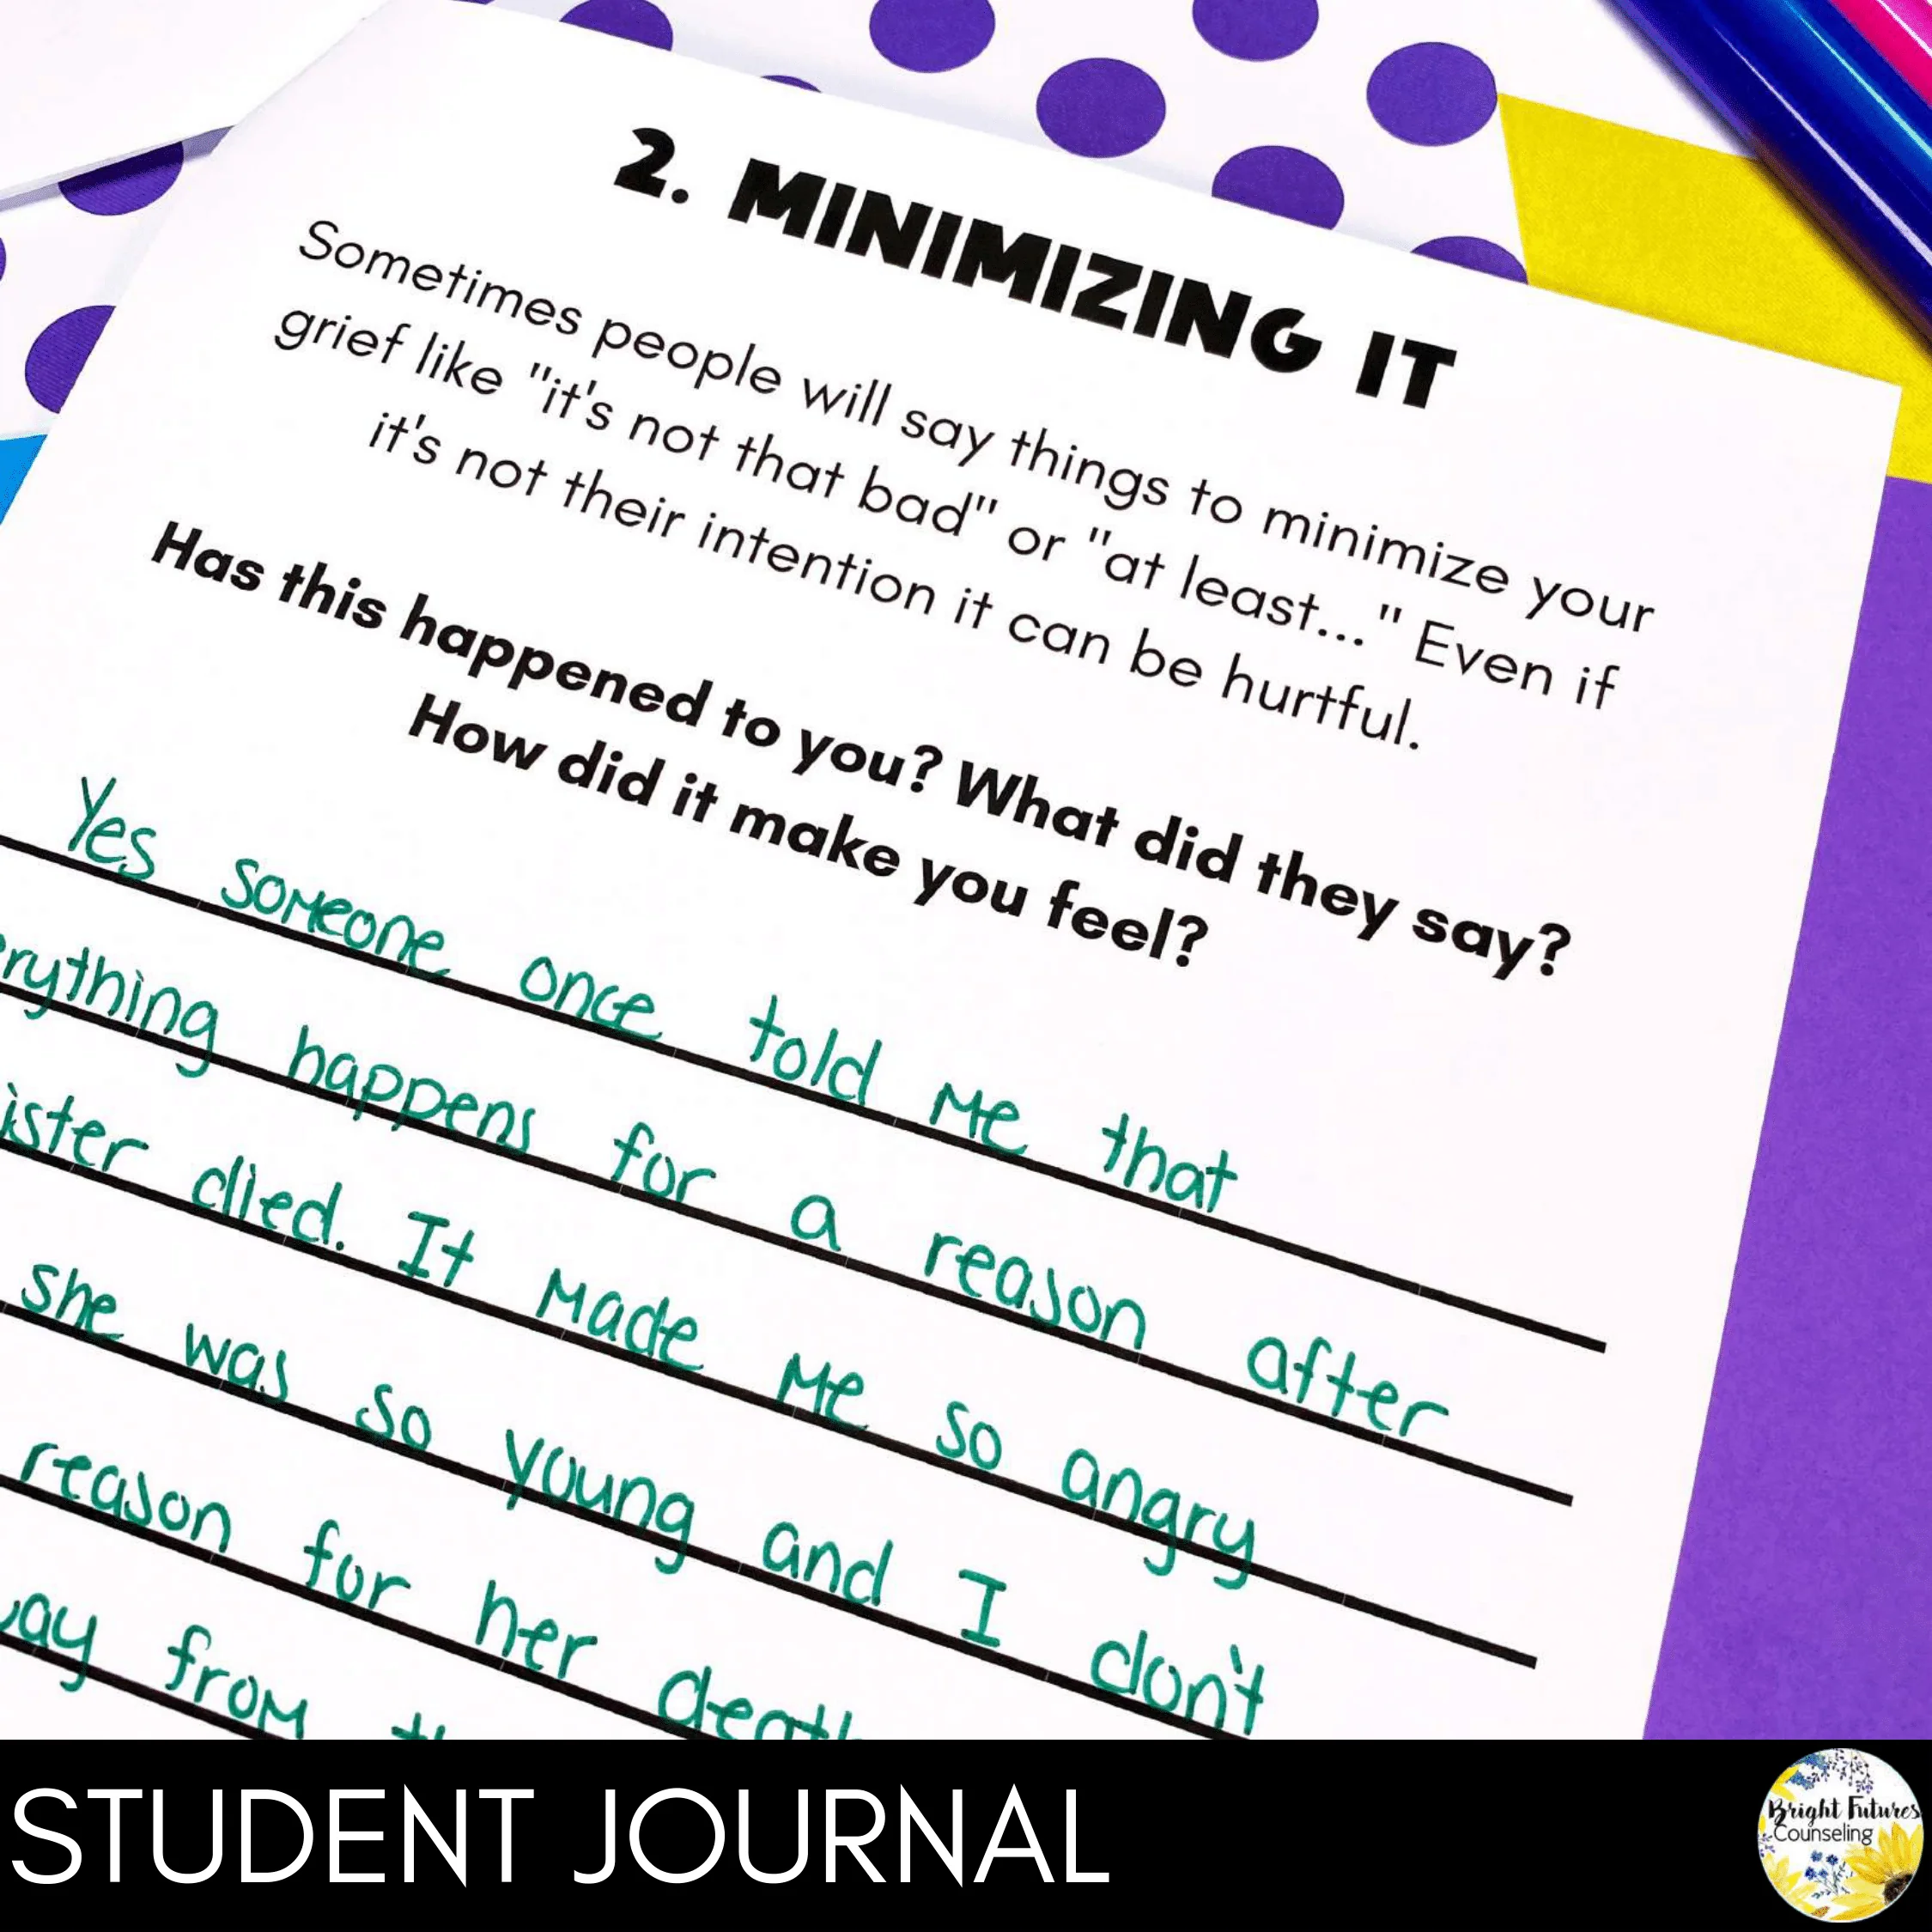 2. MINIMIZING IT
Sometimes people will say things to minimize your
grief like "it's not that bad" or "at least..." Even if
it's not their intention it can be hurtful.
Has this happened to you? What did they say?
How did it make you feel?
Yes someone once told me that
erything happens for a reason after
ister died. It made me so angry
she was so young and I don't
reason for her death
ay from
STUDENT JOURNAL
Bright Futures
Counseling